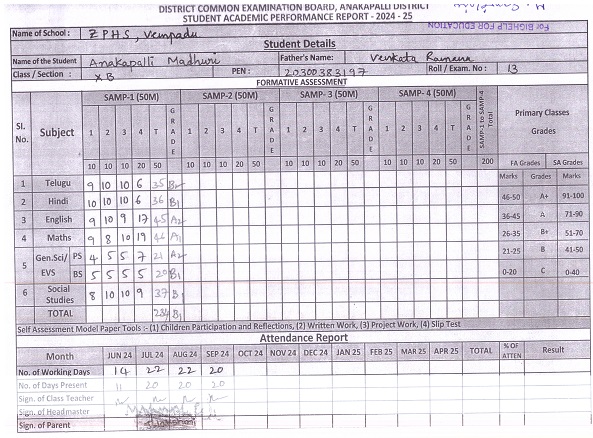 DISTRICT COMMON EXAMINATION BOARD, ANAKAPALLI DISTRICT
STUDENT ACADEMIC PERFORMANCE REPORT - 2024 - 25
For BIGHELP FOR EDUCATION
Name of School : ZPHS, Vempadu
Student Details
Name of the Student Anakapalli Madhuri Father's Name: Venkata Ramana
Class / Section : X B PEN : 20300383197 Roll / Exam. No : 13
FORMATIVE ASSESSMENT
Sl. No. Subject SAMP-1 (50M) SAMP-2 (50M) SAMP- 3 (50M) SAMP- 4 (50M) SAMP-1 to SAMP-4 Total Primary Classes Grades
1 2 3 4 T GRADE 1 2 3 4 T GRADE 1 2 3 4 T GRADE 1 2 3 4 T GRADE
10 10 10 20 50 10 10 10 20 50 10 10 10 20 50 10 10 10 20 50 200 FA Grades SA Grades
Marks Grades Marks
1 Telugu 9 10 10 6 35 B2
46-50 A+ 91-100
2 Hindi 10 10 10 6 36 B1
36-45 A 71-90
3 English 9 10 9 17 45 A2
26-35 B+ 51-70
4 Maths 9 8 10 19 46 A1
21-25 B 41-50
5 Gen.Sci/ EVS PS 4 5 5 7 21 A2
BS 5 5 5 5 20 B1
0-20 C 0-40
6 Social Studies 8 10 10 9 37 B1
TOTAL B1
Self Assessment Model Paper Tools :- (1) Children Participation and Reflections, (2) Written Work, (3) Project Work, (4) Slip Test
Attendance Report
Month JUN 24 JUL 24 AUG 24 SEP 24 OCT 24 NOV 24 DEC 24 JAN 25 FEB 25 MAR 25 APR 25 TOTAL % OF ATTEN Result
No. of Working Days 14 22 22 20
No. of Days Present 11 20 20 20
Sign. of Class Teacher
Sign. of Headmaster
Sign. of Parent